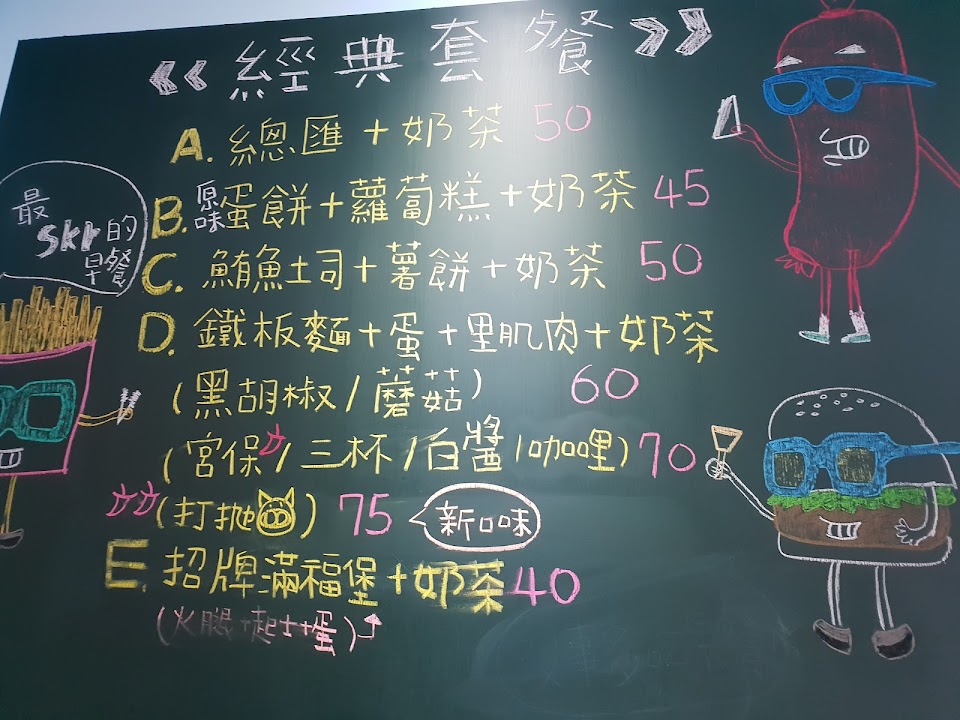 《經典套餐》
A. 總匯+奶茶 50
B. 原味蛋餅+蘿蔔糕+奶茶 45
C. 鮪魚土司+薯餅+奶茶 50
D. 鐵板麵+蛋+里肌肉+奶茶
(黑胡椒/蘑菇) 60
(宮保/三杯/白醬/咖哩) 70
(打拋) 75 新口味
E. 招牌滿福堡+奶茶 40
(火腿+起士+蛋)
最
skr的
早餐